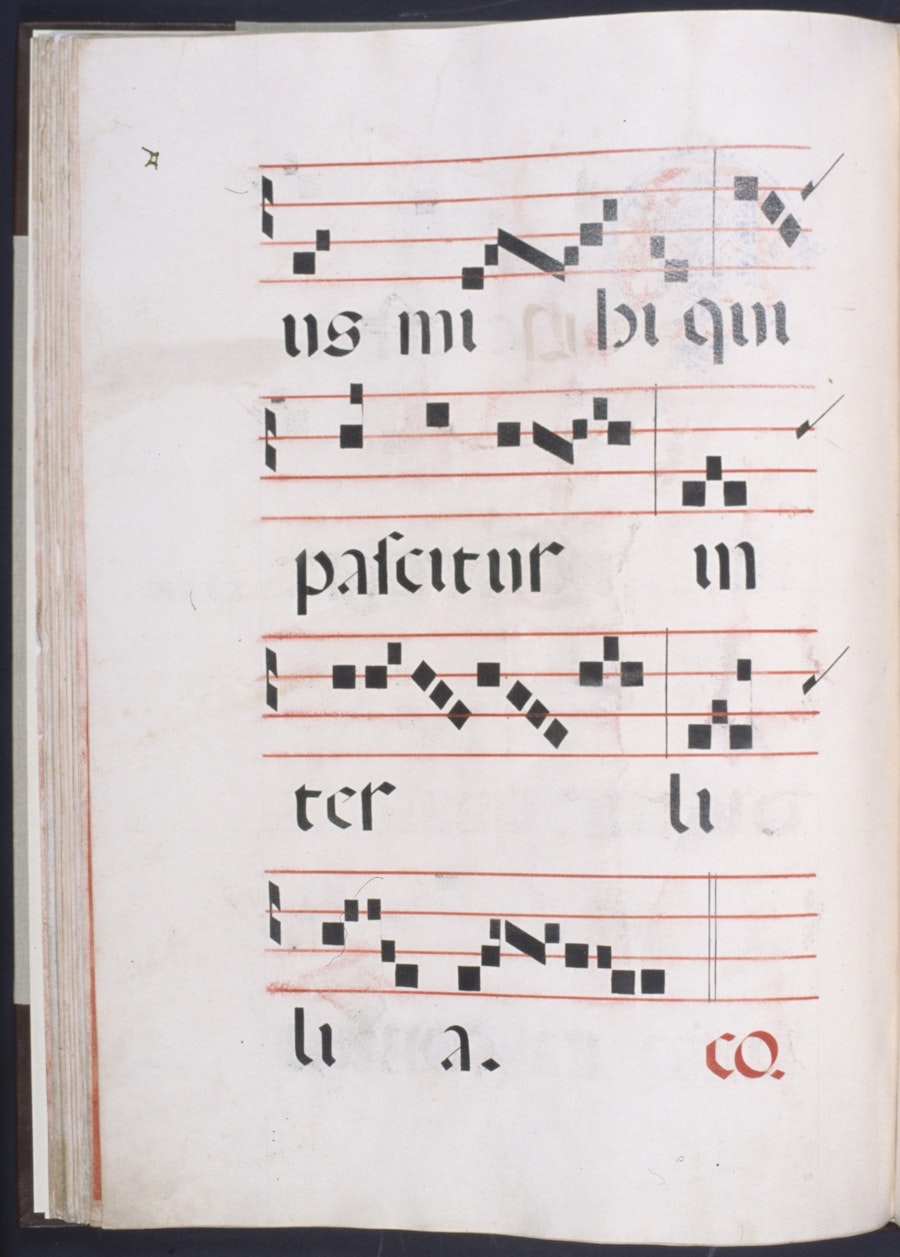 us mi bi qui
paſcitur in
ter li
li a. CO.